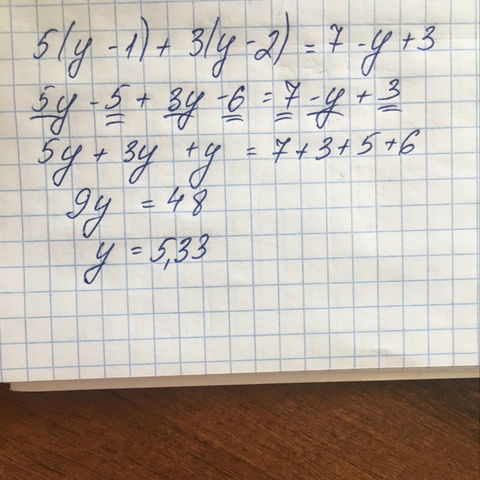 5(y - 1) + 3(y - 2) = 7 - y + 3
5y - 5 + 3y - 6 = 7 - y + 3
5y + 3y + y = 7 + 3 + 5 + 6
9y = 48
y = 5,33